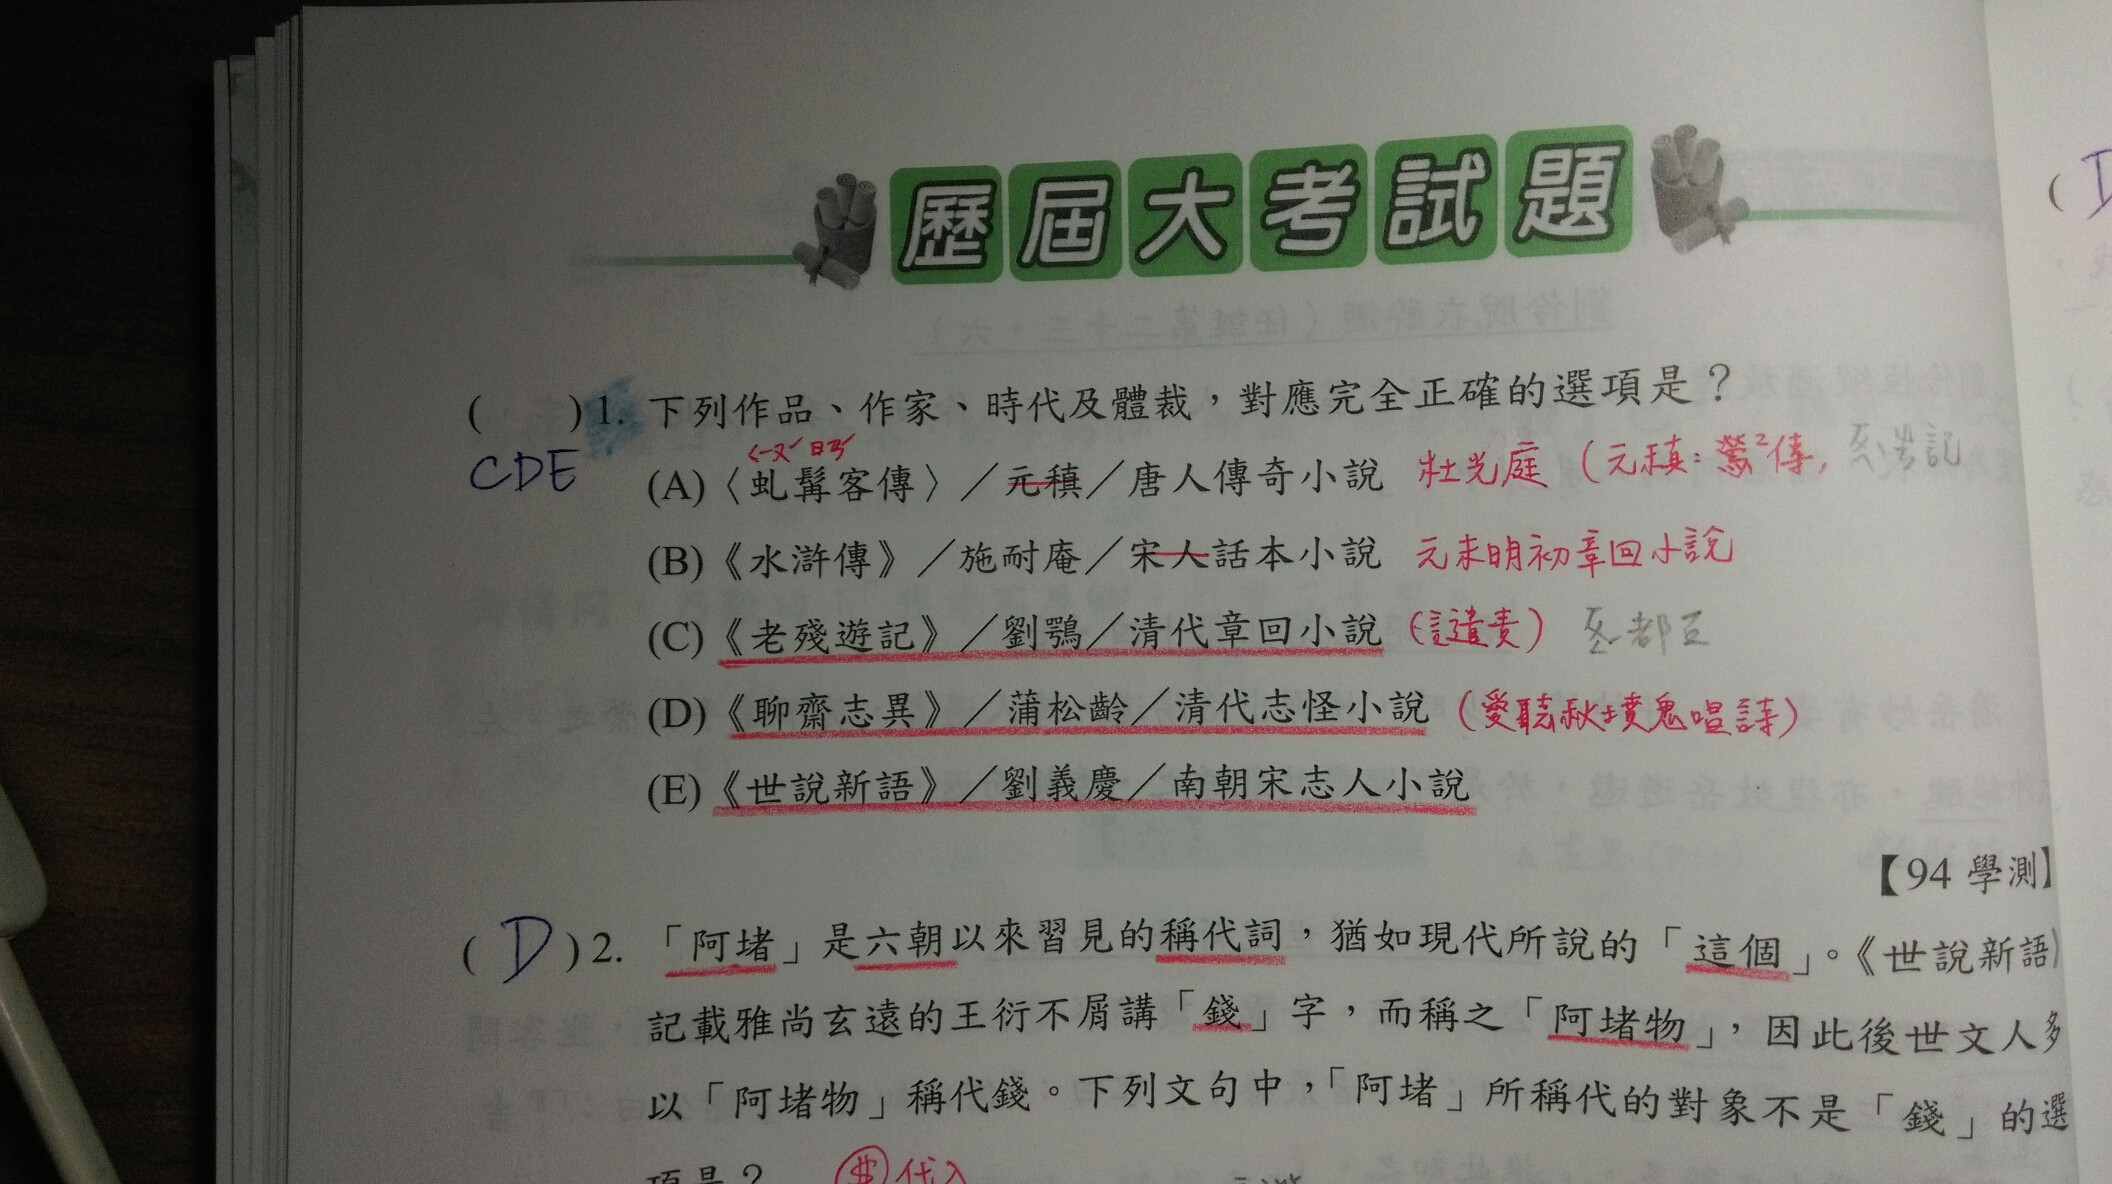 歷屆大考試題
(  )1. 下列作品、作家、時代及體裁，對應完全正確的選項是？
CDE
ㄑㄧㄡˊ ㄖㄢˊ
(A)〈虬髯客傳〉／元稹／唐人傳奇小說 杜光庭（元稹：鶯²傳，
(B)《水滸傳》／施耐庵／宋人話本小說 元末明初章回小說
(C)《老殘遊記》／劉鶚／清代章回小說（譴責）
(D)《聊齋志異》／蒲松齡／清代志怪小說（愛聽秋墳鬼唱詩）
(E)《世說新語》／劉義慶／南朝宋志人小說
【94 學測】
( D )2. 「阿堵」是六朝以來習見的稱代詞，猶如現代所說的「這個」。《世說新語》
記載雅尚玄遠的王衍不屑講「錢」字，而稱之「阿堵物」，因此後世文人多
以「阿堵物」稱代錢。下列文句中，「阿堵」所稱代的對象不是「錢」的選
項是？ $代入
(D